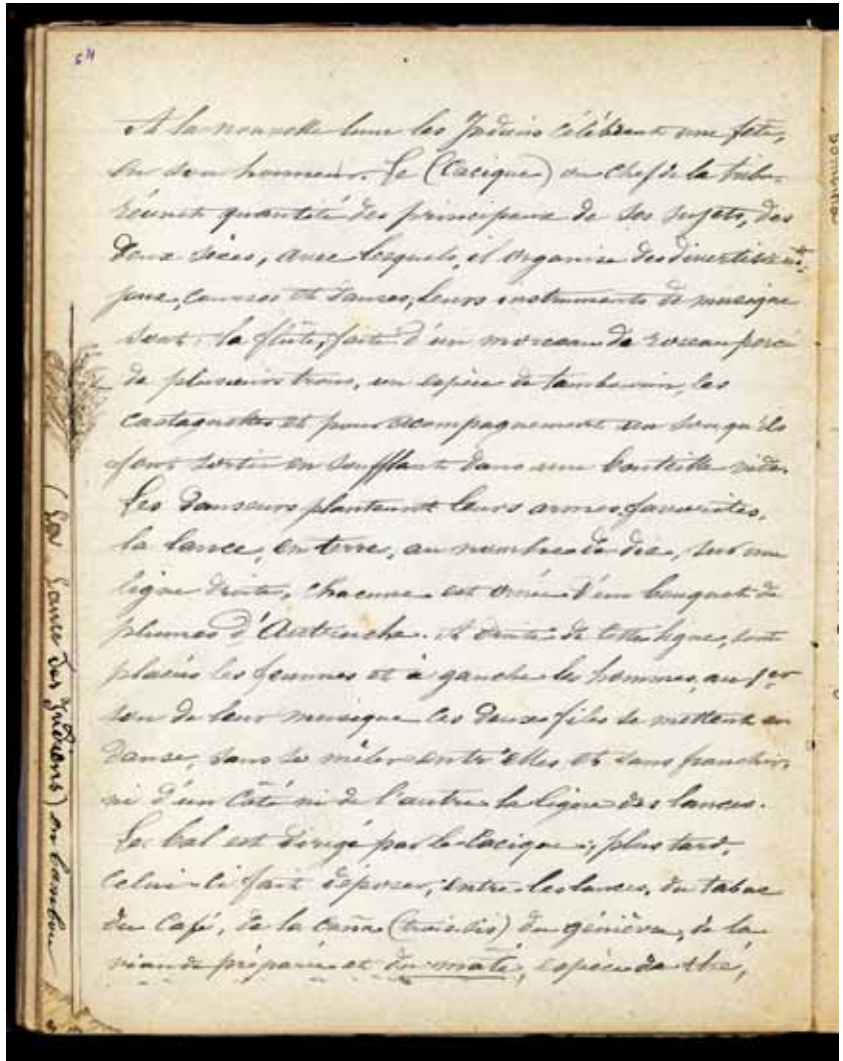 A la nouvelle lune les Indiens célèbrent une fête,
en son honneur. Le (Cacique) ou Chef de la tribu
réunit quantité des principaux de ses sujets, des
deux sexes, avec lesquels, il organise des divertissemts
jeux, courses et danses, leurs instruments de musique
sont: la flûte, faite d'un morceau de roseau percé
de plusieurs trous, un espèce de tambourin, les
castagnettes et pour acompagnement un son qu'ils
font sortir en soufflant dans une bouteille vide.
Les danseurs plantent leurs armes favorites,
la lance, en terre, au nombre de dix, sur une
ligne droite, chacune est ornée d'un bouquet de
plumes d'Autruche. A droite de cette ligne, sont
placées les femmes et à gauche les hommes, au 1er
son de leur musique les deux files se mettent en
danse, sans se mêler entr'elles, et sans franchir,
ni d'un côté ni de l'autre la ligne des lances.
Le bal est dirigé par le Cacique; plus tard,
celui-ci fait déposer, entre les lances, du tabac
du Café, de la caña du genièvre, de la
viande préparée et du maté, espèce de thé,
(La Lance des Indiens) en bambou